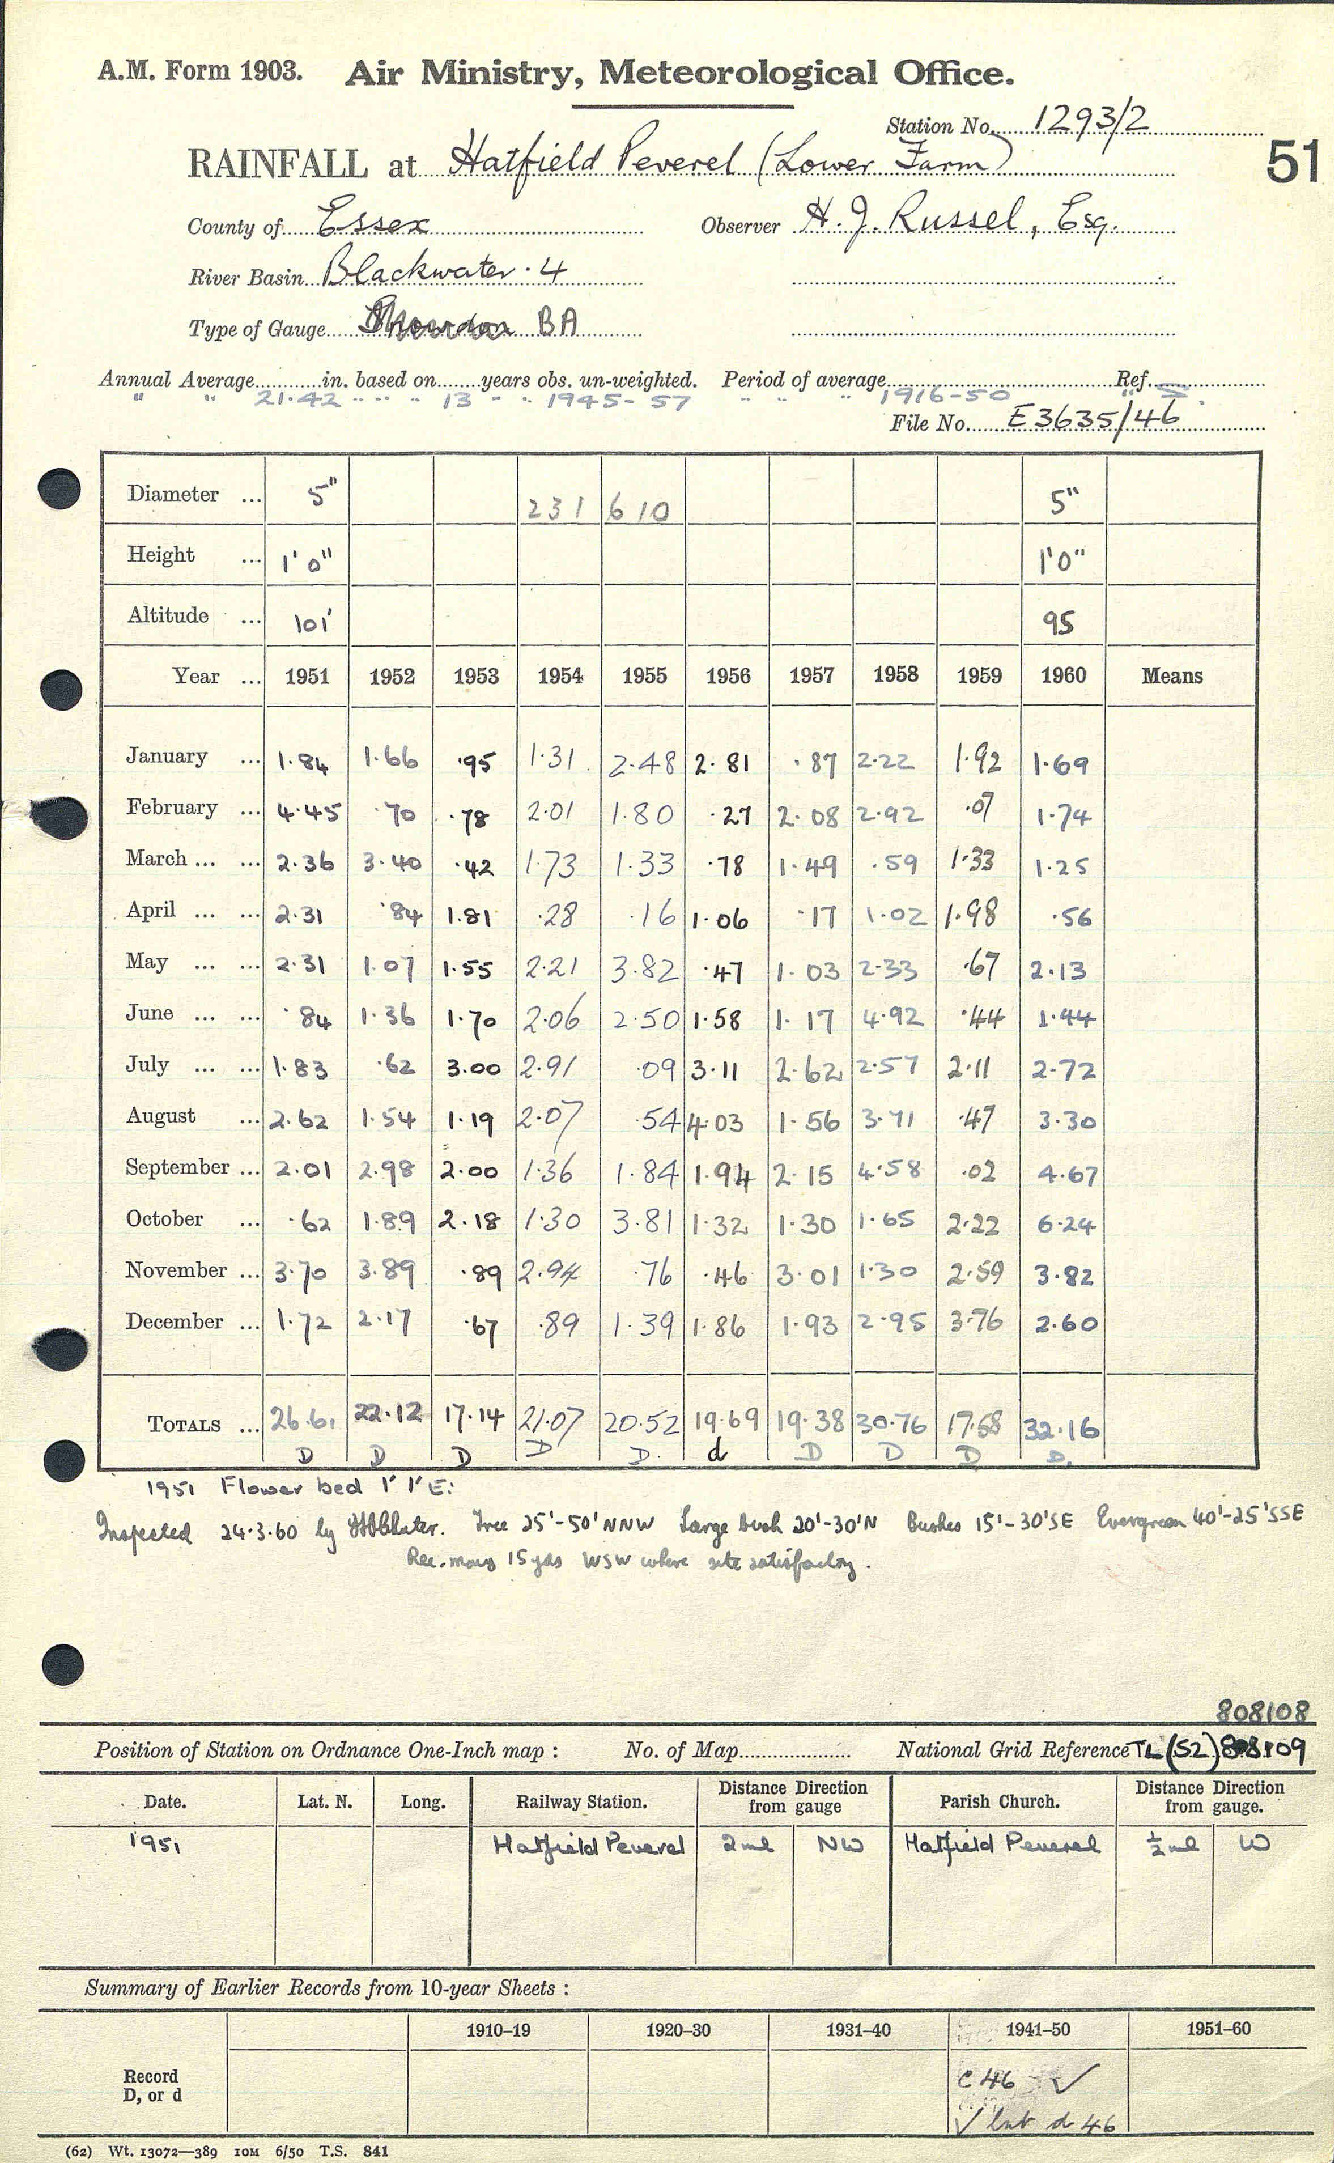 A.M. Form 1903. Air Ministry, Meteorological Office.
Station No. 1293/2
RAINFALL at Hatfield Peverel (Lower Farm)
51
County of Essex Observer H. J. Russel, Esq.
River Basin Blackwater · 4
Type of Gauge Snowdon BA
Annual Average in. based on years obs. un-weighted. Period of average Ref.
" " 21.42 " " " 13 " " 1945-57 " " " 1916-50 " S.
File No. E3635/46
Diameter ... 5" 231 610 5"
Height ... 1'0" 1'0"
Altitude ... 101' 95
Year ... 1951 1952 1953 1954 1955 1956 1957 1958 1959 1960 Means
January ... 1.84 1.66 .95 1.31 2.48 2.81 .87 2.22 1.92 1.69
February ... 4.45 .70 .78 2.01 1.80 .27 2.08 2.92 .07 1.74
March ... ... 2.36 3.40 .42 1.73 1.33 .78 1.49 .59 1.33 1.25
April ... ... 2.31 .84 1.81 .28 .16 1.06 .17 1.02 1.98 .56
May ... ... 2.31 1.07 1.55 2.21 3.82 .47 1.03 2.33 .67 2.13
June ... ... .84 1.36 1.70 2.06 2.50 1.58 1.17 4.92 .44 1.44
July ... ... 1.83 .62 3.00 2.91 .09 3.11 2.62 2.57 2.11 2.72
August ... 2.62 1.54 1.19 2.07 .54 4.03 1.56 3.71 .47 3.30
September ... 2.01 2.98 2.00 1.36 1.84 1.94 2.15 4.58 .02 4.67
October ... .62 1.89 2.18 1.30 3.81 1.32 1.30 1.65 2.22 6.24
November ... 3.70 3.89 .89 2.94 .76 .46 3.01 1.30 2.59 3.82
December ... 1.72 2.17 .67 .89 1.39 1.86 1.93 2.95 3.76 2.60
TOTALS ... 26.61 22.12 17.14 21.07 20.52 19.69 19.38 30.76 17.58 32.16
D D D D D. d D D D D.
1951 Flower bed 1' 1' E:
Inspected 24.3.60 by Tree 25'-50' NNW Large bush 20'-30' N Bushes 15'-30' SE Evergreen 40'-25' SSE
Rec. move 15 yds WSW where site satisfactory.
808108
Position of Station on Ordnance One-Inch map : No. of Map National Grid Reference TL (52) 808109
Date. Lat. N. Long. Railway Station. Distance Direction from gauge Parish Church. Distance Direction from gauge.
1951 Hatfield Peverel 2 ml NW Hatfield Peverel ½ ml W
Summary of Earlier Records from 10-year Sheets :
1910–19 1920–30 1931–40 1941–50 1951–60
Record D, or d
C 46 ✓
✓ but d 46
(62) Wt. 13072—389 10M 6/50 T.S. 841